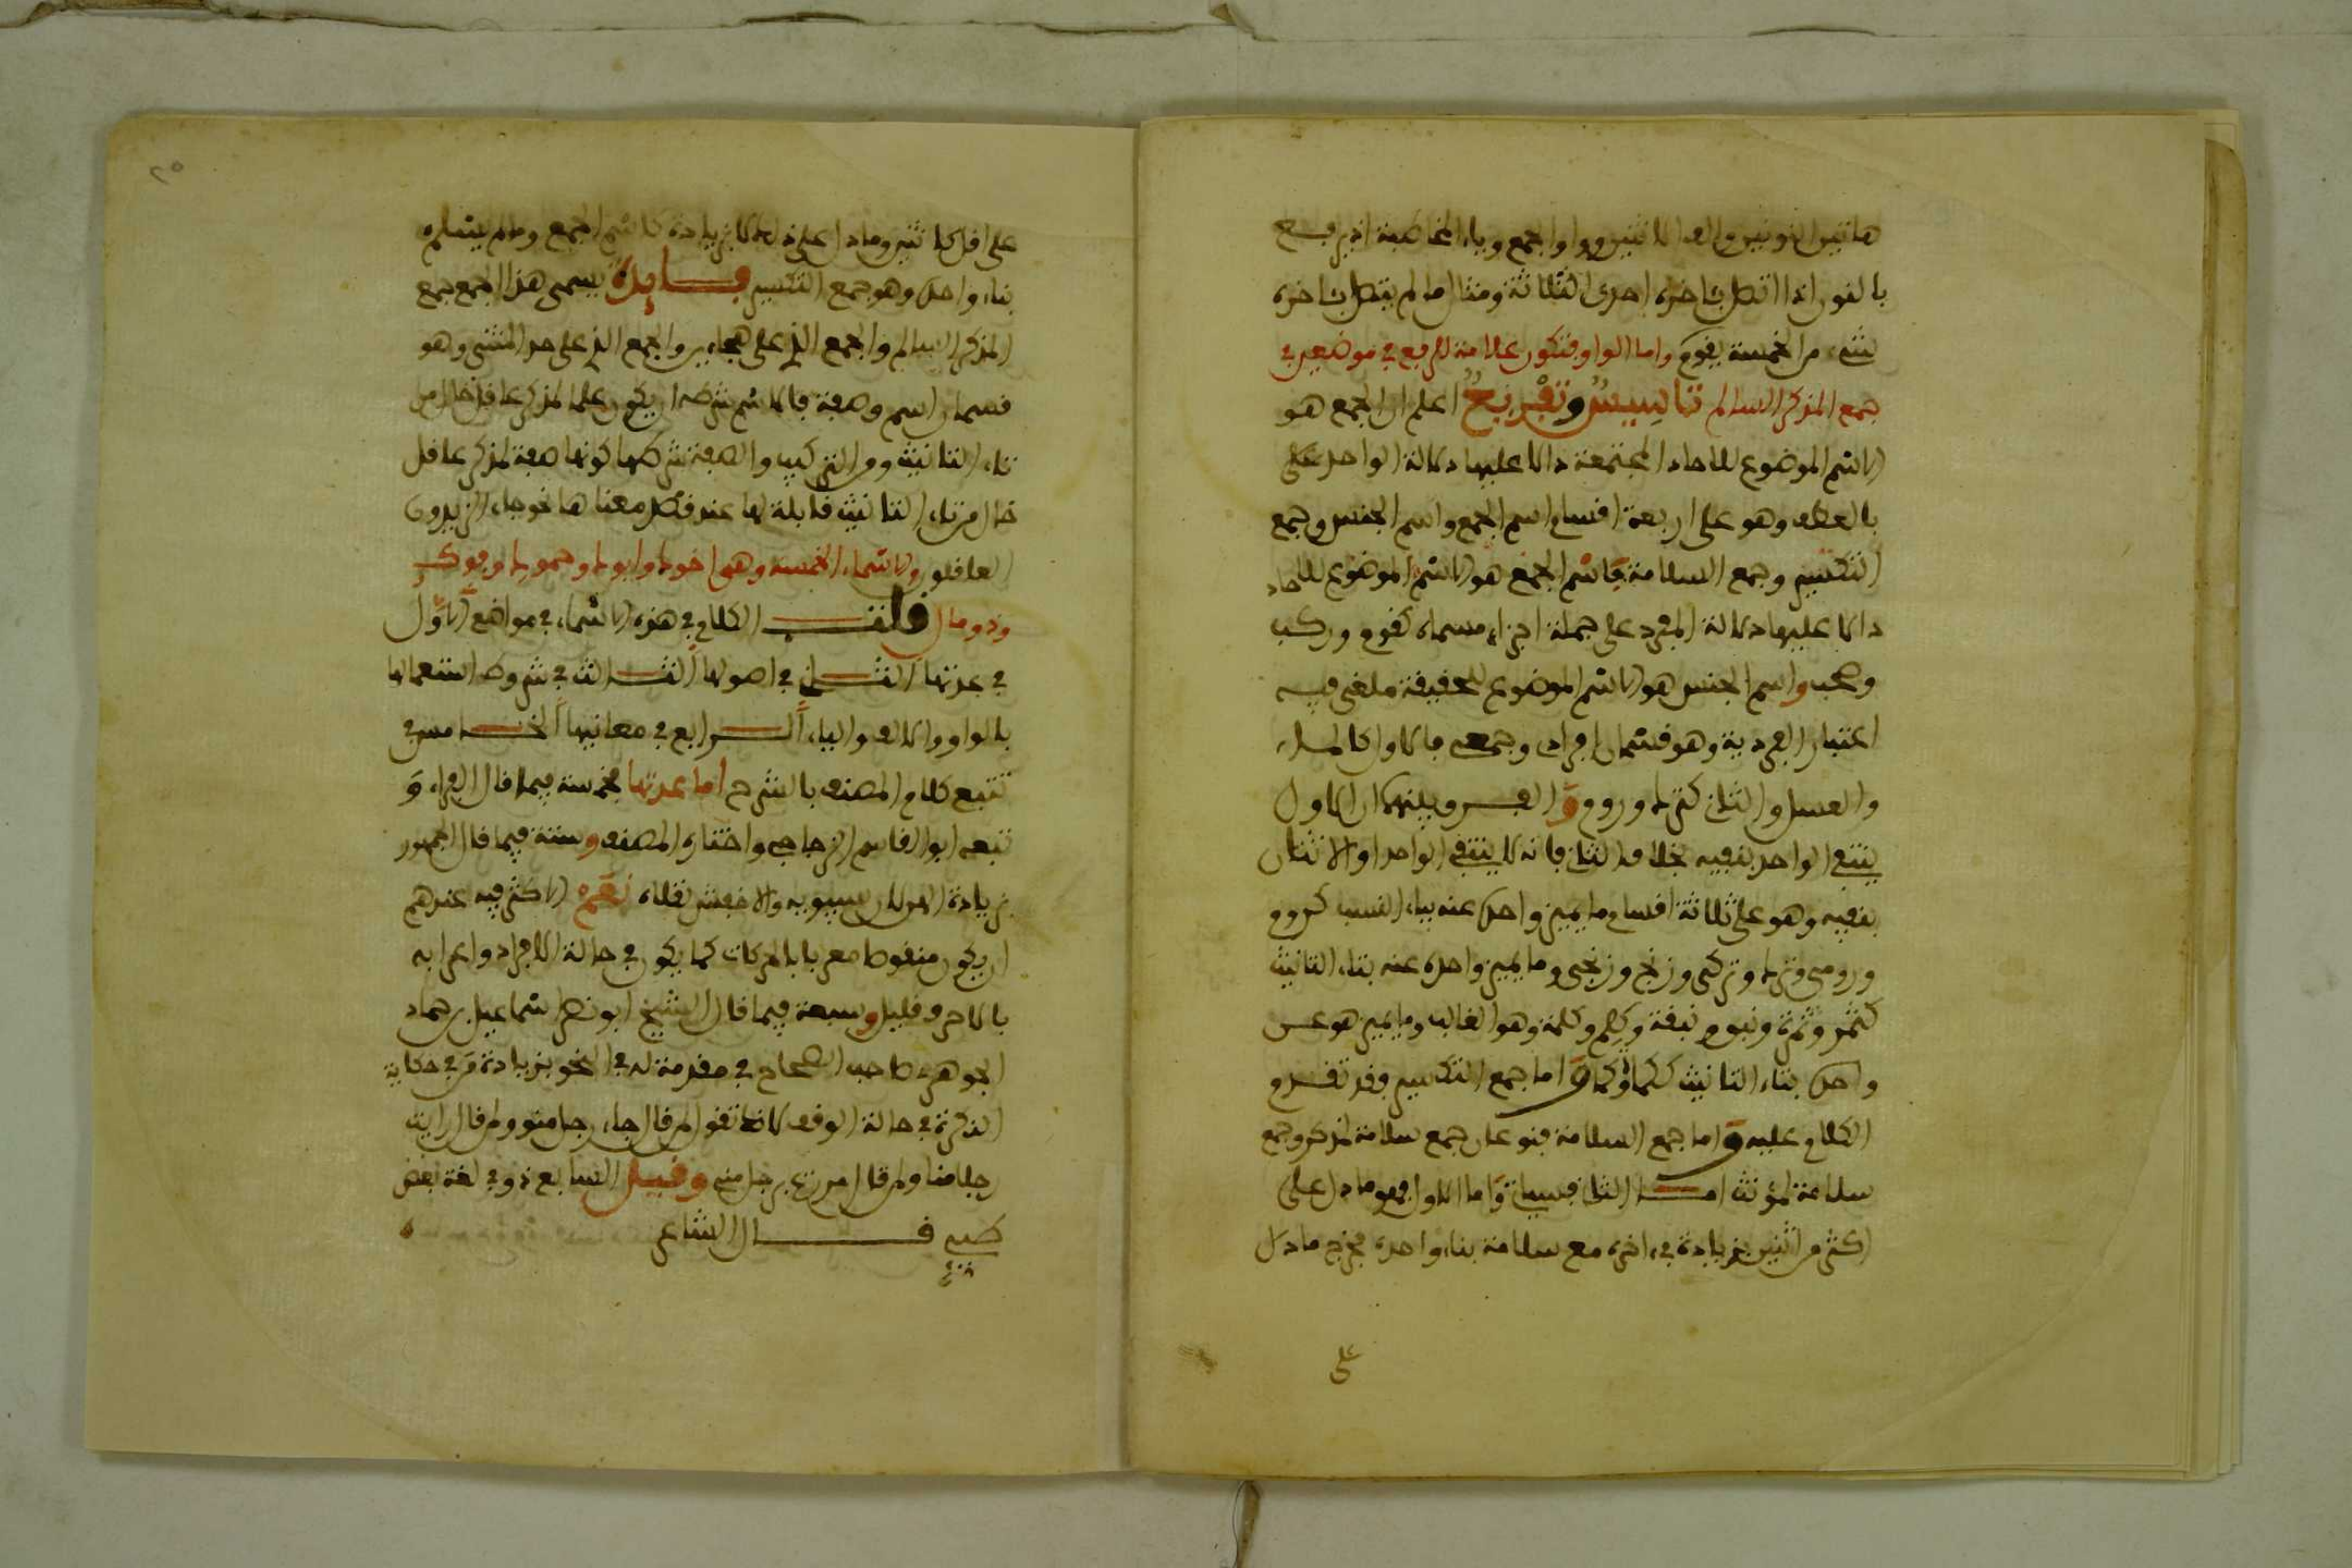 هاتين النونين والف الاثنين وواو الجمع وياء المخاطبة اذ يرفع
بالنون اذا اتصل بآخره احدى الثلاثة ومثال ما لم يتصل بآخره
شيء من الخمسة يقوم واما الواو فتكون علامة للرفع في موضعين في
جمع المذكر السالم تاسيس وتفريع اعلم ان الجمع هو
الاسم الموضوع للآحاد المجتمعة دالا عليها دلالة الواحد على
بالعطف وهو على اربعة اقسام اسم الجمع واسم الجنس وجمع
التكسير وجمع السلامة فاسم الجمع هو الاسم الموضوع للآحاد
دالا عليها دلالة المفرد على جملة اجزاء مسماه كقوم وركب
وصحب واسم الجنس هو الاسم الموضوع للحقيقة ملغى فيه
اعتبار الفردية وهو قسمان افرادي وجمعي فالاول كالماء
والعسل والثاني كترك وروم و الفرق بينهما ان الاول
ينتفي الواحد بنفيه بخلاف الثاني فانه لا ينتفي الواحد او الاثنان
بنفيه وهو على ثلاثة اقسام ما يميز واحده عنه بياء النسب كروم
ورومي وترك وتركي وزنج وزنجي وما يميز واحده عنه بتاء التانيث
كثمر وثمرة ونبق ونبقة وكلم وكلمة وهو الغالب وما يميز هو عن
واحده بتاء التانيث ككما وكماة واما جمع التكسير فقد تقدم
الكلام عليه واما جمع السلامة فنوعان جمع سلامة لمذكر وجمع
سلامة لمؤنث اما الثاني فسياتي واما الاول فهو ما دل على
اكثر من اثنين بزيادة في اخره مع سلامة بناء واحده فخرج ما دل
على
على اقل كاثنين وما دل على ذلك لا بزيادة كاسم الجمع وما لم يسلم
بناء واحده وهو جمع التكسير فايدة يسمى هذا الجمع جمع
المذكر السالم والجمع الذي على هجاءين والجمع الذي على حد المثنى وهو
قسمان اسم وصفة فالاسم شرطه ان يكون علما لمذكر عاقل خال من
تاء التانيث ومن التركيب والصفة شرطها كونها صفة لمذكر عاقل
خال من تاء التانيث قابلة لها عند قصد معناها نحو جاء الزيدون
العاقلون والاسماء الخمسة وهي اخوك وابوك وحموك وفوك
وذو مال قلت الكلام في هذه الاسماء في مواضع الاول
في عدتها الثاني في اصولها الثالث في شروط استعمالها
بالواو والالف والياء الرابع في معانيها الخامس في
تتبع كلام المصنف بالشرح اما عدتها فخمسة فيما قال الفراء و
تبعه ابو القاسم الزجاجي واختاره المصنف وستة فيما قال الجمهور
بزيادة الهن لان سيبويه والاخفش نقلاه نعم الاكثر فيه عندهم
ان يكون منقوصا معربا بالحركات كما يكون في حالة الافراد واعرابه
بالاحرف قليل وسبعة فيما قال الشيخ ابو نصر اسماعيل بن حماد
الجوهري صاحب الصحاح في مقدمة له في النحو بزيادة من في حكاية
النكرة في حالة الوقف كانك تقول لمن قال جاء رجل منو ولمن قال رايت
رجلا منا ولمن قال مررت برجل مني وقيل السابع ذو في لغة بعض
طيئ قال الشاعر